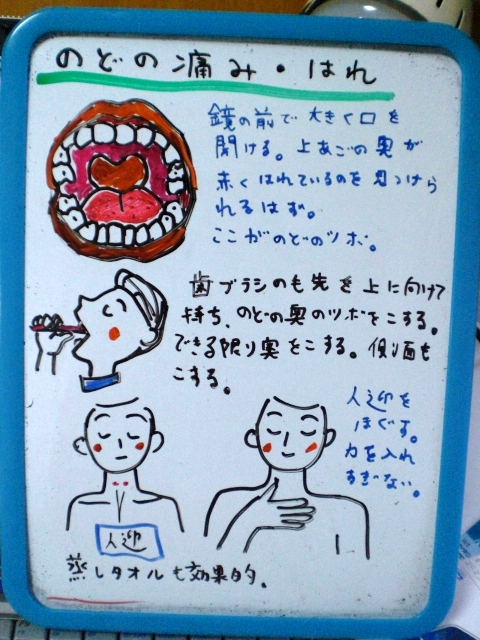 のどの痛み・はれ
鏡の前で大きく口を
開ける。上あごの奥が
赤くはれているのを見つけら
れるはず。
ここがのどのツボ。
歯ブラシのも先を上に向けて
持ち、のどの奥のツボをこする。
できる限り奥をこする。側面も
こする。
人迎を
ほぐす。
力を入れ
すぎない。
人迎
蒸しタオルも効果的。